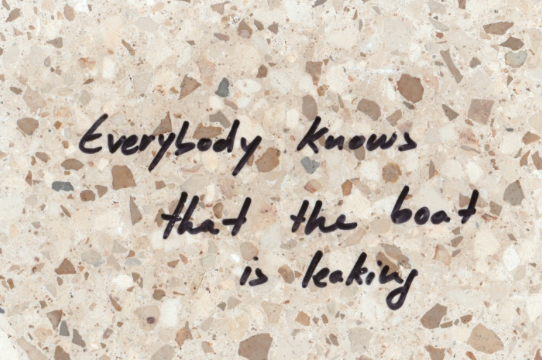 Everybody knows
that the boat
is leaking